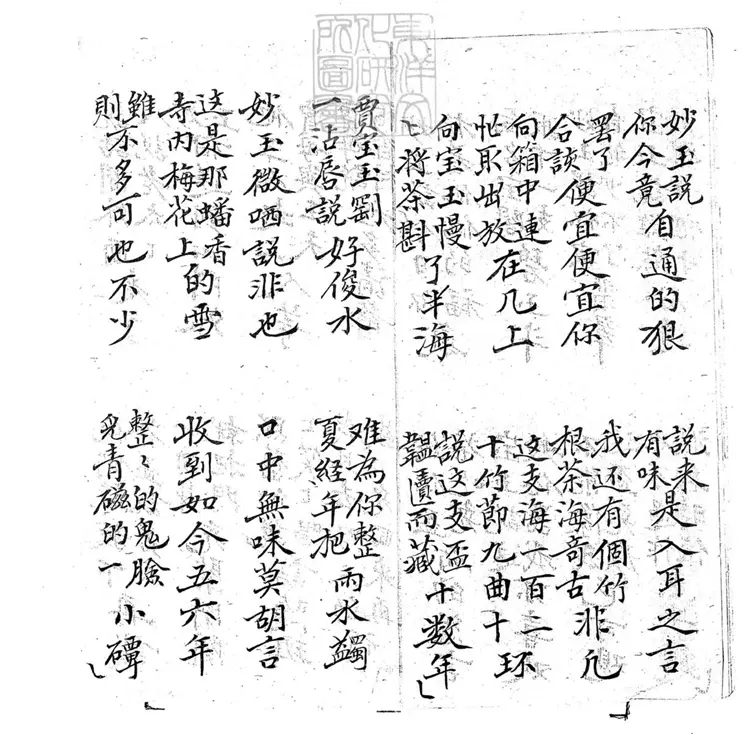 妙玉説你今竟自通的狠
説来有味是入耳之言
罢了合該便宜便宜你
我还有個竹根茶海竒古非凢
向箱中連忙取出放在几上
这支海一百二十竹節九曲十环
向宝玉慢〻将茶斟了半海
説这支盃韞匵而藏十数年
賈宝玉劉一沾唇説好俊水
难為你整夏經年把雨水蠲
妙玉微哂説非也
口中無味莫胡言
这是那蟠香寺内梅花上的雪
收到如今五六年
雖則不多可也不少
整〻的鬼臉兒青磁的一小磹